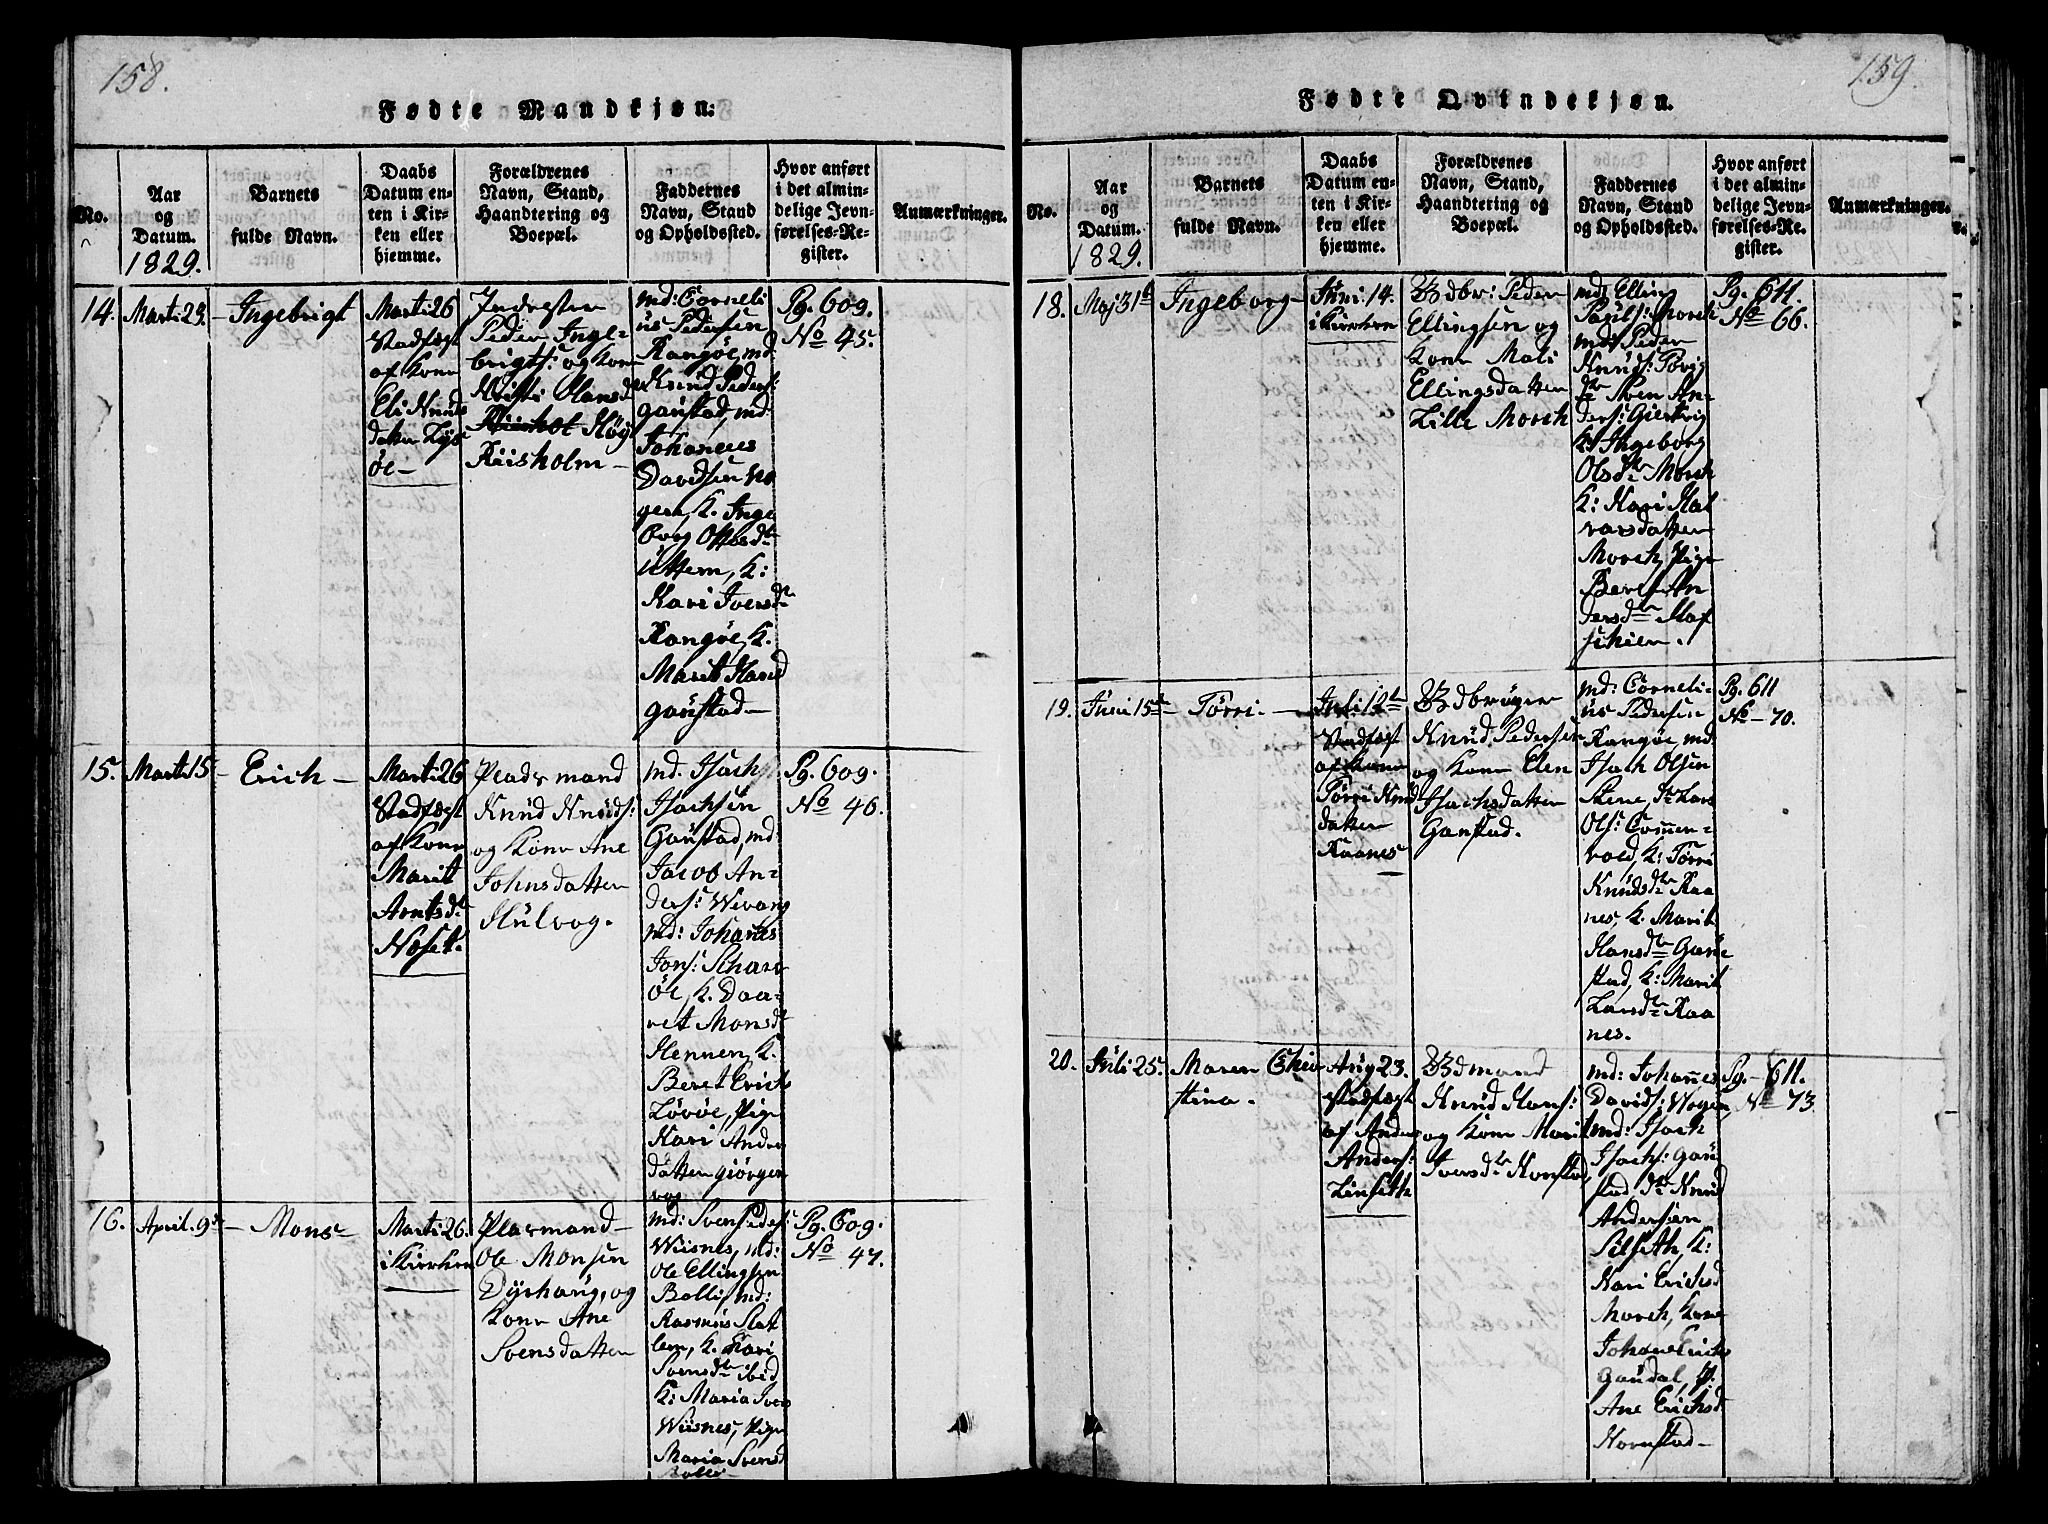 158.
Fødte Mandkjøn:
No.
Aar
og
Datum.
1829.
Barnets
fulde Navn.
Daabs
Datum en-
ten i Kir-
ken eller
hjemme.
Forældrenes
Navn, Stand,
Haandtering og
Boepæl.
Faddernes
Navn, Stand
og Opholdssted.
Hvor anført
i det almin-
delige Jevn-
førelses-Re-
gister.
Anmærkninger.
14.
Ingebrigt
Marti 26
Stadfæst
af Kone
Eli Knuds
datter
øe-
Inderster
Peder Inge-
brigts: og Kone
Kristi Hansd
Riisholm-
md: Corneli
üs Pedersen
Rangøe, md
Knud Peders:
Gaustad, md.
Johannes
Davidsen Wo
gen, K. Inge
borg Ottesdtr
K:
Kari Iversdtr
Rangøe, K.
Marit Hansd
Gaustad-
Pg. 609.
No 45.
15.
Marti 15
Erich
Marti 26
Stadfæst
af Kone
Marit
Arntsdtr
Noset.
Pladsmand
Knud Knuds:
og Kone Ane
Johnsdatter
Hulvog.
md. Isach
Isachsen
Gaustad, md:
Jacob An-
ders: Wevang
md: Johannes
Jons:
øe, K. Daa-
ret Monsdtr
Hennen, K.
Beret Erichs
Løvøe, Pige
Kari Anders
datter Giörgen
vog
Pg. 609.
No 46.
16.
April. 9de
Mons
Marti 26.
i Kirchen
Plasmand
Ole Monsen
Dyrhaug, og
Kone Ane
Svensdatter
md: Sven Peders:
Wiisnes, md:
Ole Ellingsen
Bolli, md:
Rasmus Slat
lem, K. Kari
Svensdtr ibid
K: Maria Ivers
Wiisnes, Pige
Maria Svensd
Bolli
Pg. 609.
No 47.
159.
Fødte Qvindekjøn.
No.
Aar
og
Datum.
1829.
Barnets
fulde Navn.
Daabs
Datum en-
ten i Kir-
ken eller
hjemme.
Forældrenes
Navn, Stand,
Haandtering og
Boepæl.
Faddernes
Navn, Stand
og Opholdssted.
Hvor anført
i det almin-
delige Jevn-
førelses-Re-
gister.
Anmærkninger.
18.
Maj 31te
Ingeborg
Juni 14.
i Kirchen
Peder
Ellingsen og
Kone Mali
Ellingsdatter
Lille Morch
md: Elling
Pauls: Morch
md: Peder
Knuds:
Sven An-
ders:
K: Ingeborg
Olsdtr Morch
K: Kari Hal
varsdatter
Morch, Pige
Beret An
dersdtr
Pg. 611.
No 66.
19.
Juni 15de
Törri
Juli 12te
Stadfæst
af Kone
Törri Knud
datter
Raanes
Knud Pedersen
og Kone Elen
Isachsdatter
Gaustad.
md: Corneli-
üs Pedersen
Rangøe, md:
Isach Olsen
Lars
Ols:
K: Törri
Knudsdtr Raa
nes, K. Marit
Hansdtr Gau
stad, K: Marit
Larsdtr Raa
nes.
Pg. 611
No - 70.
20.
Juli 25.
Maren Chir
stina.
Aug 23.
Stadfæst
af Anders
Anders:
Linseth
Knud Hans:
og Kone Marit
Iversdtr
md: Johannes
Davids: Wogen,
md: Isach
Isachs: Gau
stad, Knud
Andersen
Silseth, K:
Kari Erichsd
Morch, Kone
Johane Erichs
Gaudal, P.
Ane Erichsd
Pg. - 611.
No - 73